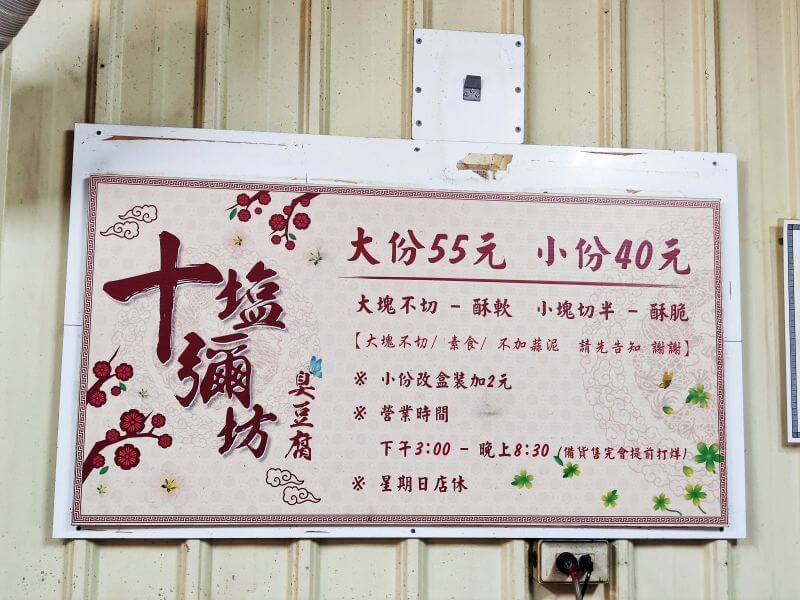 十塩彌坊
臭豆腐
大份55元 小份40元
大塊不切 - 酥軟 小塊切半 - 酥脆
【大塊不切/ 素食/ 不加蒜泥 請先告知 謝謝】
※ 小份改盒裝加2元
※ 營業時間
下午3:00 - 晚上8:30 (備貨售完會提前打烊)
※ 星期日店休